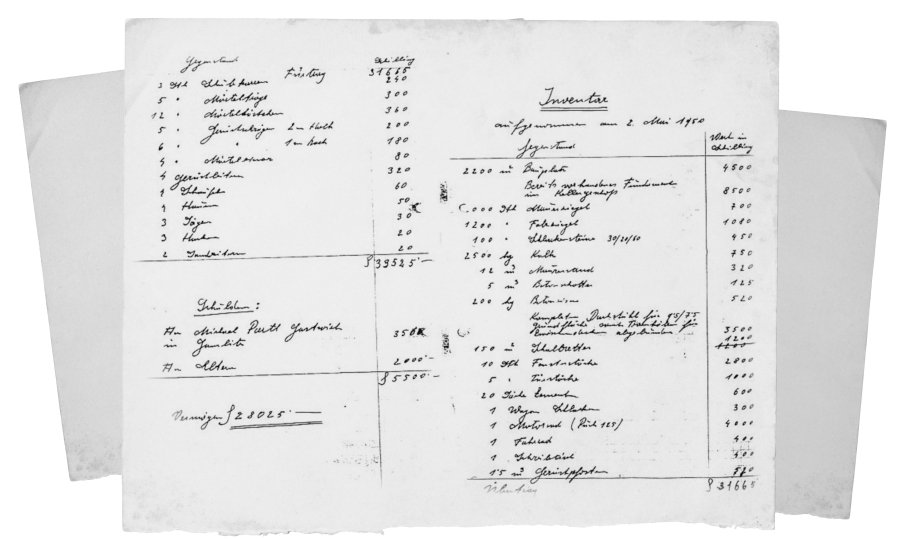 Gegenstand Schilling
Fürtrag 31665
2 Stk Schubkarren 240
5 " Mörteltröge 300
12 " 360
5 " 2 m Hoch 200
6 " " 1 m hoch 180
4 " 80
4 Gerüstleitern 320
4 Schaufel 60
4 Hauen 50
3 Sägen 30
3 Hacken 20
2 20
S 39525.—
Schulden:
An Michael Gastwirt 35
in Gamlitz
An Eltern 2000.—
S 5500.—
Vermögen S 28025.—
Inventar
aufgenommen am 2. Mai 1950
Gegenstand Wert in
Schilling
2200 m² Bauplatz 4500
Bereits vorhandenes Fundament
im Kellergeschoß 8500
000 Stk Mauerziegel 700
1200 " Falzziegel 1080
100 " Schlackensteine 30/20/60 450
2500 kg Kalk 750
12 m³ Mauersand 320
5 m³ Betonschotter 125
200 kg Betoneisen 520
Kompletten Dachstuhl für 95/75
Grundfläche samt für
abgebunden 3500
1200
150 m² Schalbretter 1200
10 Stk Fensterstöcke 2800
5 " Türstöcke 1000
20 Säcke Zement 600
1 Wagen Schlacken 300
1 Motorrad (Puch 125) 4000
1 Fahrrad 400
1 Schreibtisch 400
15 m² Gerüstpfosten 520
Übertrag S 31665